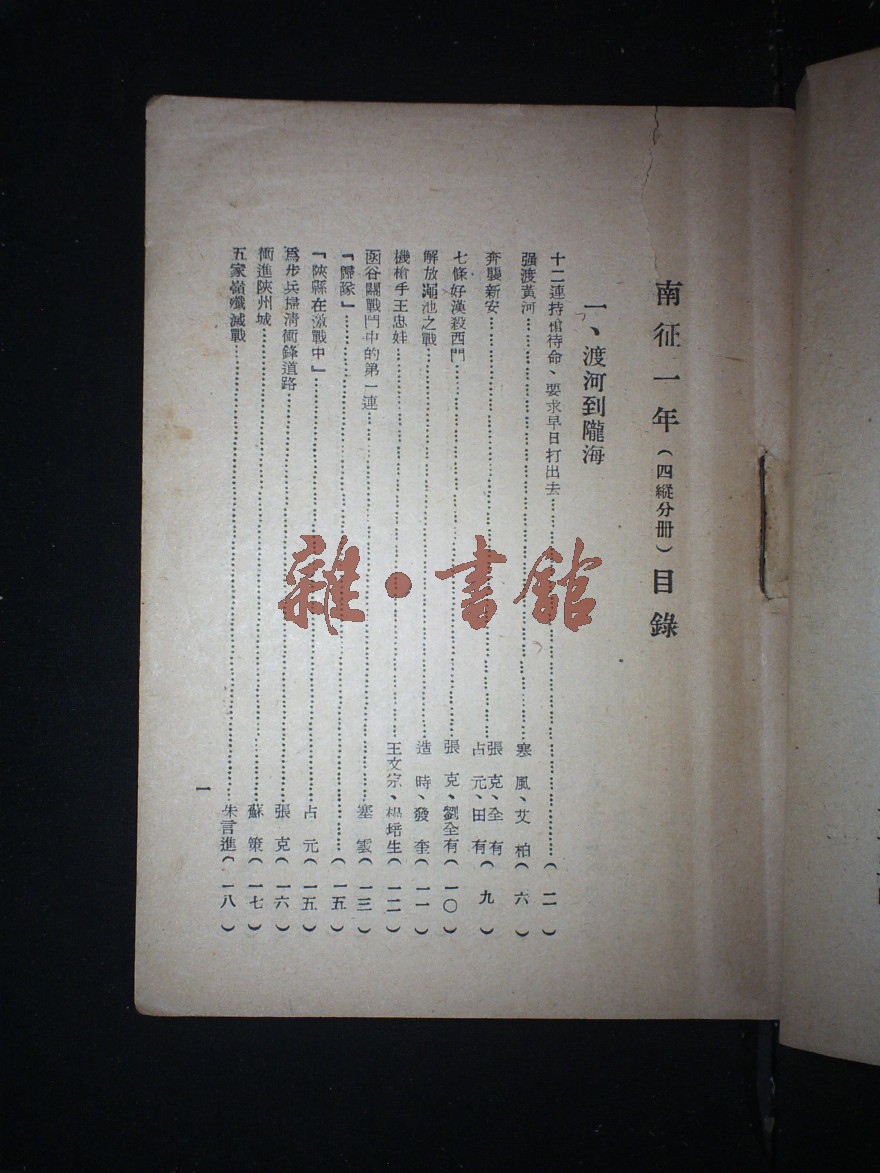 南征一年(四縱分册)目錄
一、渡河到隴海
十二連持槍待命、要求早日打出去……(一一)
强渡黃河……寒風、艾柏(六)
奔襲新安……張克、全有 占元、田有(九)
七條好漢殺西門……張克、劉全有(一〇)
解放澠池之戰……造時、發奎(一一)
機槍手王忠娃……王文宗、楊培生(一二)
函谷關戰鬥中的第一連……塞雲(一三)
『歸隊』……(一五)
『陝縣在激戰中』……占元(一五)
爲步兵掃清衝鋒道路……張克(一六)
衝進陝州城……蘇策(一七)
五家嶺殲滅戰……朱言進(一八)
一
雜·書館